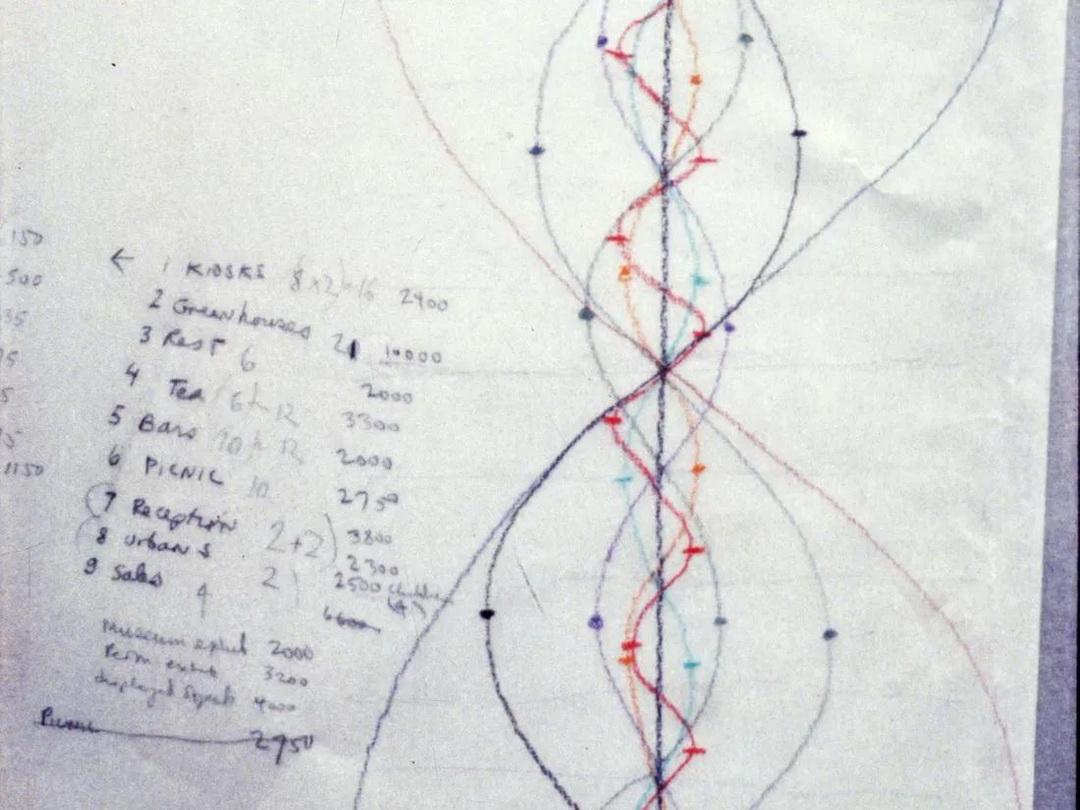 150
500
35
5
5
5
1150
← 1 KIOSKS (8x2)=16 2400
2 Greenhouses 21 10000
3 Rest 6 2000
4 Tea 6 + 12 3300
5 Bars 10 + 12 2000
6 PICNIC 10 2750
7 Reception 2+2) 3800
8 urban s 2 2300
9 Sales 4 2500
6600
Museum exhib 2000
Perm exhib 3200
displayed 4000
Picnic 2950